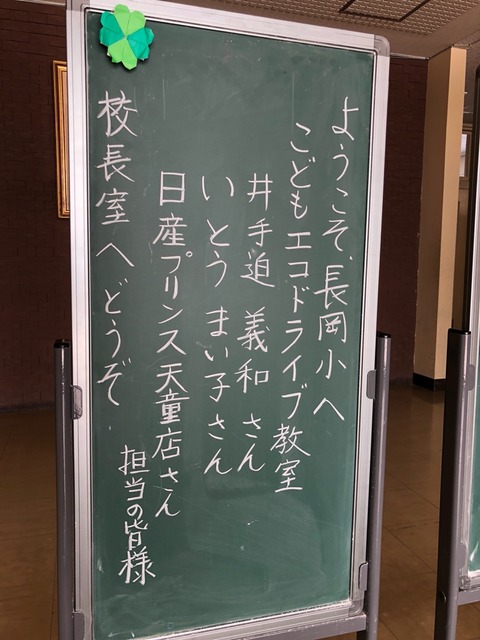 ようこそ、長岡小へ
こどもエコドライブ教室
井手迫 義和 さん
いとう まい子 さん
日産プリンス天童店さん
担当の皆様
校長室へどうぞ